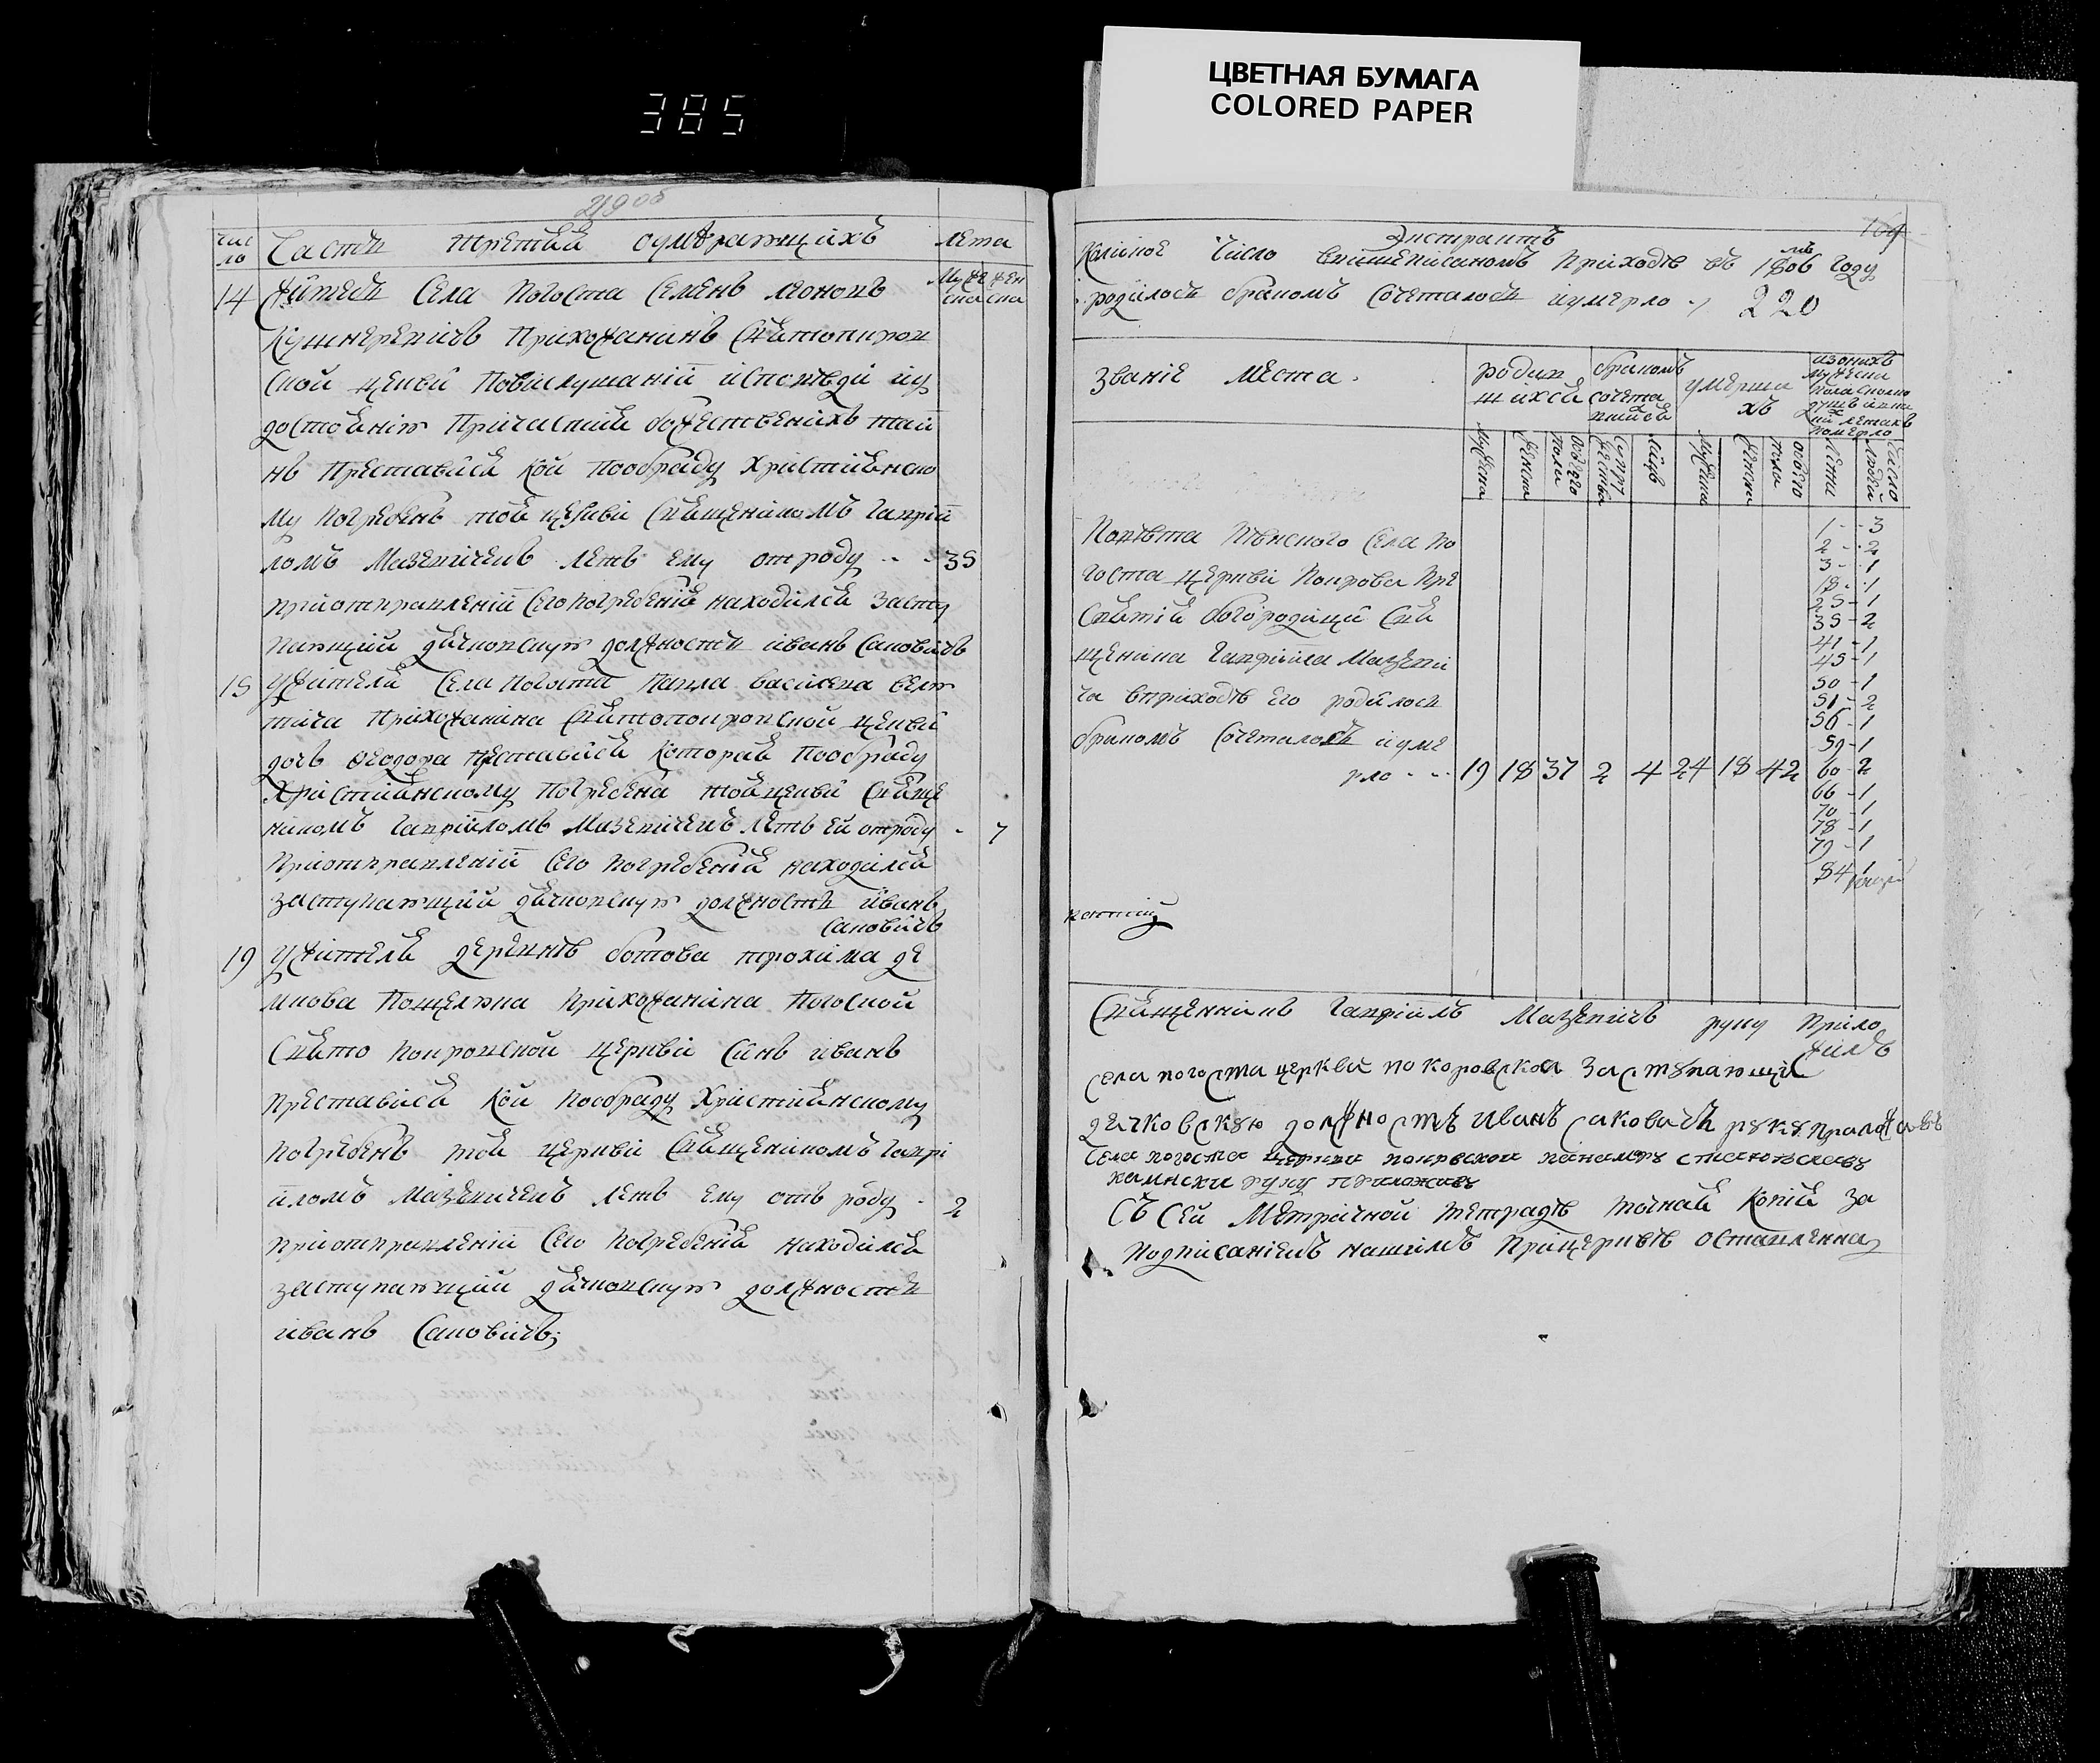 385
ЦВЕТНАЯ БУМАГА
COLORED PAPER
Число
Часть третья о умѣрающихъ
Лета
Мужеска
Женска
14
Житель Села Погоста Семенъ Леоновъ
Кушнеревичъ Прихожанинъ Святопокров
ской церкви По выслушаніи исповѣди и у
достоенію Причастия божественихъ тай
нъ Преставися кой по обряду Християнско
му Погребенъ той церкви Священикомъ Гаврии
ломъ Мазевичемъ летъ ему отроду - - 35
При отправленіи Сего погребенія находился засту
пающий дячковскую должность иванъ Саковичъ
15
У жителя Села Погоста Павла василева
прихожанина Святопокровской церкви
дочь Огодора преставися которая По обряду
Християнскому Погребена той церкви Свяще
никомъ Гавриломъ Мазевичемъ летъ ей отроду - 7
При отправленіи Сего Погребения находился
заступающий дячковскую должность иванъ
Саковичъ
19
У жителя деревнѣ ботова трохима де
мкова прихожанина Погоской
Свято Покровской церкви Синъ иванъ
преставися кой По обряду Християнскому
погребенъ той церкви Священикомъ Гаври
иломъ Мазевичемъ летъ ему отъ роду - 2
При отправлении Сего Погребения находился
заступающий дячковскую должность
иванъ Саковичъ;
Экстрактъ
Коликое Число вишеписаномъ Приходѣ въ 1806мъ году
родилось бракомъ Сочеталось и умерло
званіе места.
родив
шихся
бракомъ
сочета
вшихся
умерши
хъ
изонихъ
мужеска
пола сколко
душъ и вка
кихъ летахъ
померло
Мужеска
Женска
Обоего
пола
Супру
жества
Лицъ
Мужеска
Женска
Обоего
пола
Лета
Число
людей
Повѣта Пѣнского Села По
госта церкви Покрова Пре
Святия богородици Свя
щеника Гавриила Мазеви
ча в приходѣ его родилось
бракомъ Сочеталось и уме
рло - - 19 18 37 2 4 24 18 42
1 - - 3
2 - - 2
3 - - 1
18 - - 1
25 - 1
35 - 2
41 - 1
45 - 1
50 - 1
51 - 2
56 - 1
59 - 1
60 - 2
66 - 1
70 - 1
78 - 1
79 - 1
84 1
Священникъ Гавріилъ Мазевичъ руку Прило
жилъ
села погоста церквй покоровской заступающий
дячковскую должность иванъ саковичъ руку приложилъ
Села погоста церкви покровской панамарь
камнски руку приложилъ
Съ Сей Метричной тетрадѣ точная Копія за
подписаніемъ нашимъ При церквѣ оставленна